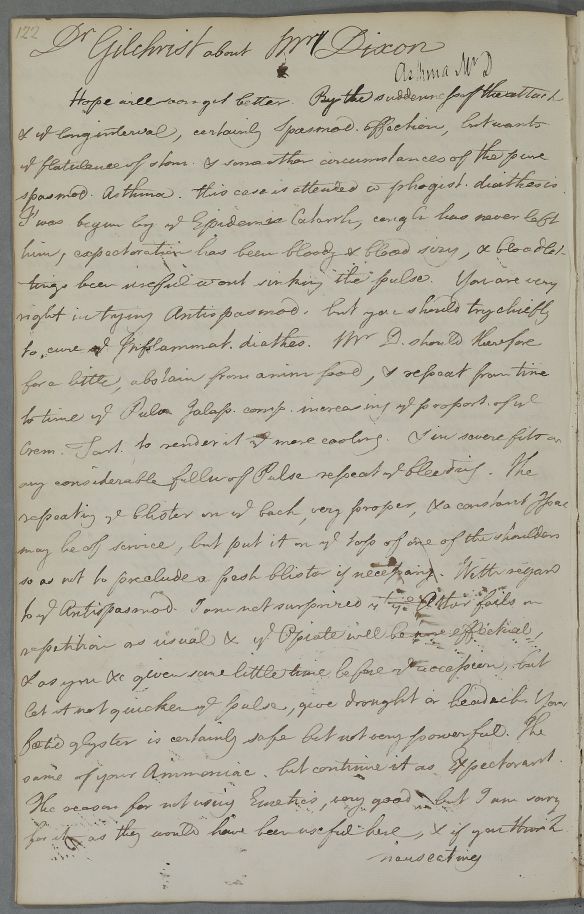 122
Dr Gilchrist about Mr Dixon
Asthma Mr D
Hope will soon get better. By the suddenness of the attack
& ye long interval, certainly Spasmod. affection, but wants
ye flatulence of stom. & some other circumstances of the pure
spasmod. Asthma. this case is attended w phogist. diathesis.
T'was begun by ye Epidemic Catarrh, cough has never left
him, expectoration has been bloody & blood sizy, & bloodlet-
tings been useful wout sinking the pulse. You are very
right in trying Antispasmod. but you should try chiefly
to cure ye Inflammat. diathes. Mr D. should therefore
for a little, abstain from anim food, & repeat from time
to time ye Pulv Jalap. comp. increasing ye proport. of ye
Crem. Tart. to render it ye more cooling. & in severe fits or
any considerable fulln of Pulse repeat ye bleeding. The
repeating ye blister on ye back, very proper, & a constant Issue
may be of service, but put it on ye tops of one of the shoulders
so as not to preclude a fresh blister if necessary. With regard
to ye Antispasmod. I am not surprized ye Æther fails on
repetition as usual & ye Opiate will be more effectual,
& as you &c given some little time before ye accession, but
let it not quicken ye pulse, give drought or headach. Your
Foetid glyster is certainly safe but not very powerful. The
same of your Ammoniac. but continue it as Expectorant.
The reason for not using Emetics, very good, but I am sorry
for it, as they would have been useful here, & if you think
nauseating